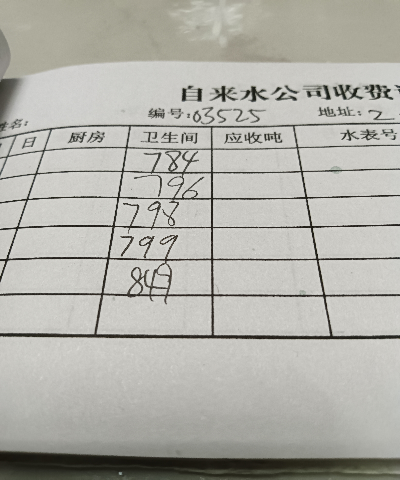 自来水公司收费
姓名: 编号:03525 地址:2
日 厨房 卫生间 应收吨 水表号
784
796
798
799